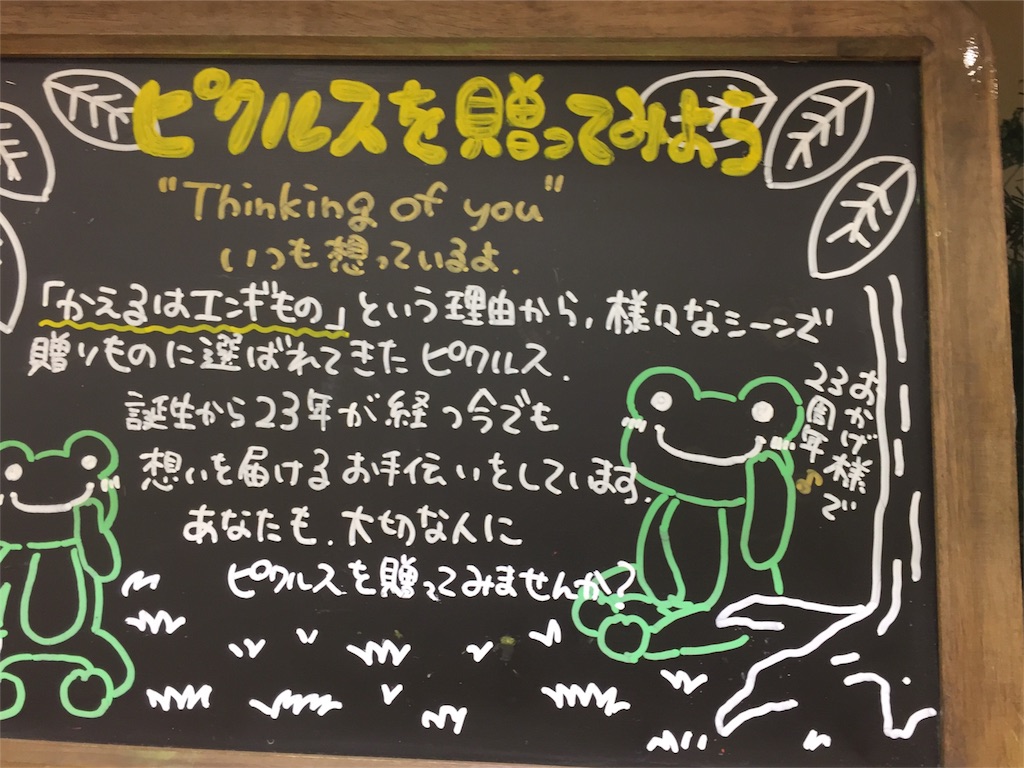 ピクルスを贈ってみよう
"Thinking of you"
いつも想っているよ.
「かえるはエンギもの」という理由から,様々なシーンで
贈りものに選ばれてきたピクルス.
誕生から23年が経つ今でも
想いを届けるお手伝いをしています.
あなたも.大切な人に
ピクルスを贈ってみませんか?
おかげ様で
23周年♪